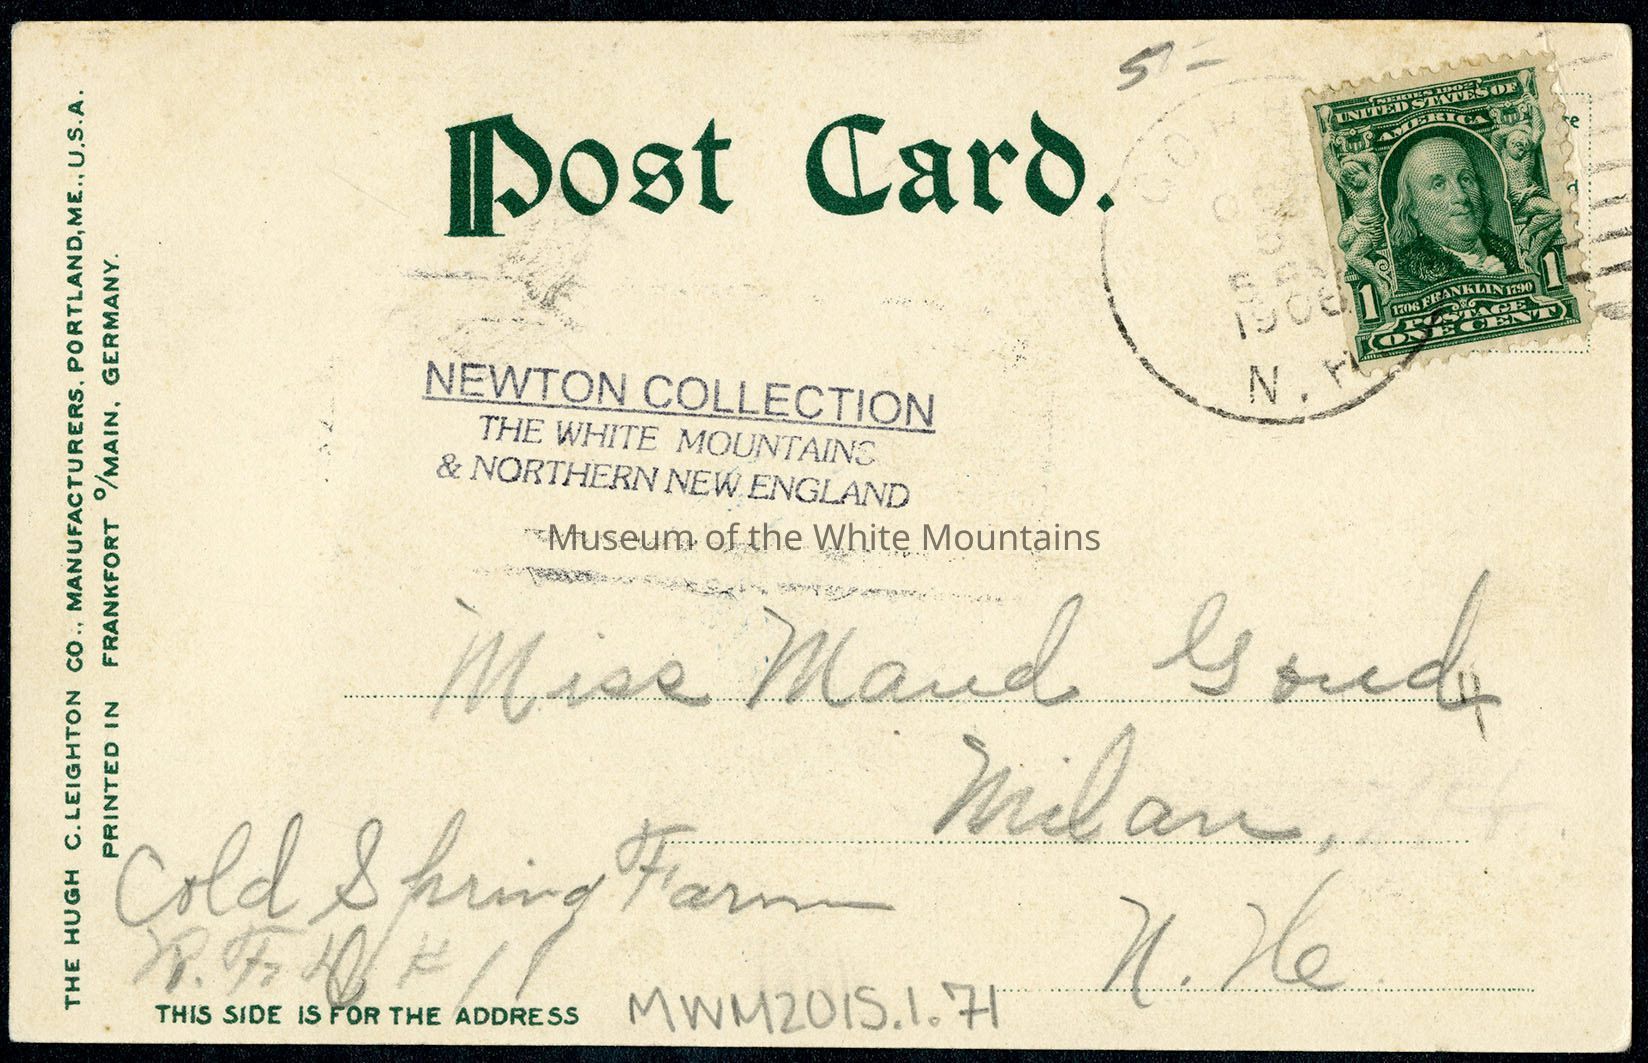 Post Card.
5
SERIES 1902
UNITED STATES OF
AMERICA
1706 FRANKLIN 1790
1 1
POSTAGE
ONE CENT
5
1906
N. H.
NEWTON COLLECTION
THE WHITE MOUNTAINS
& NORTHERN NEW ENGLAND
Museum of the White Mountains
Miss Maud Goud
Milan,
N. He
Cold Spring Farm
R. F. D. # 1
THIS SIDE IS FOR THE ADDRESS
MWM2015.1.71
THE HUGH C. LEIGHTON CO., MANUFACTURERS, PORTLAND, ME., U.S.A.
PRINTED IN FRANKFORT o/MAIN, GERMANY.